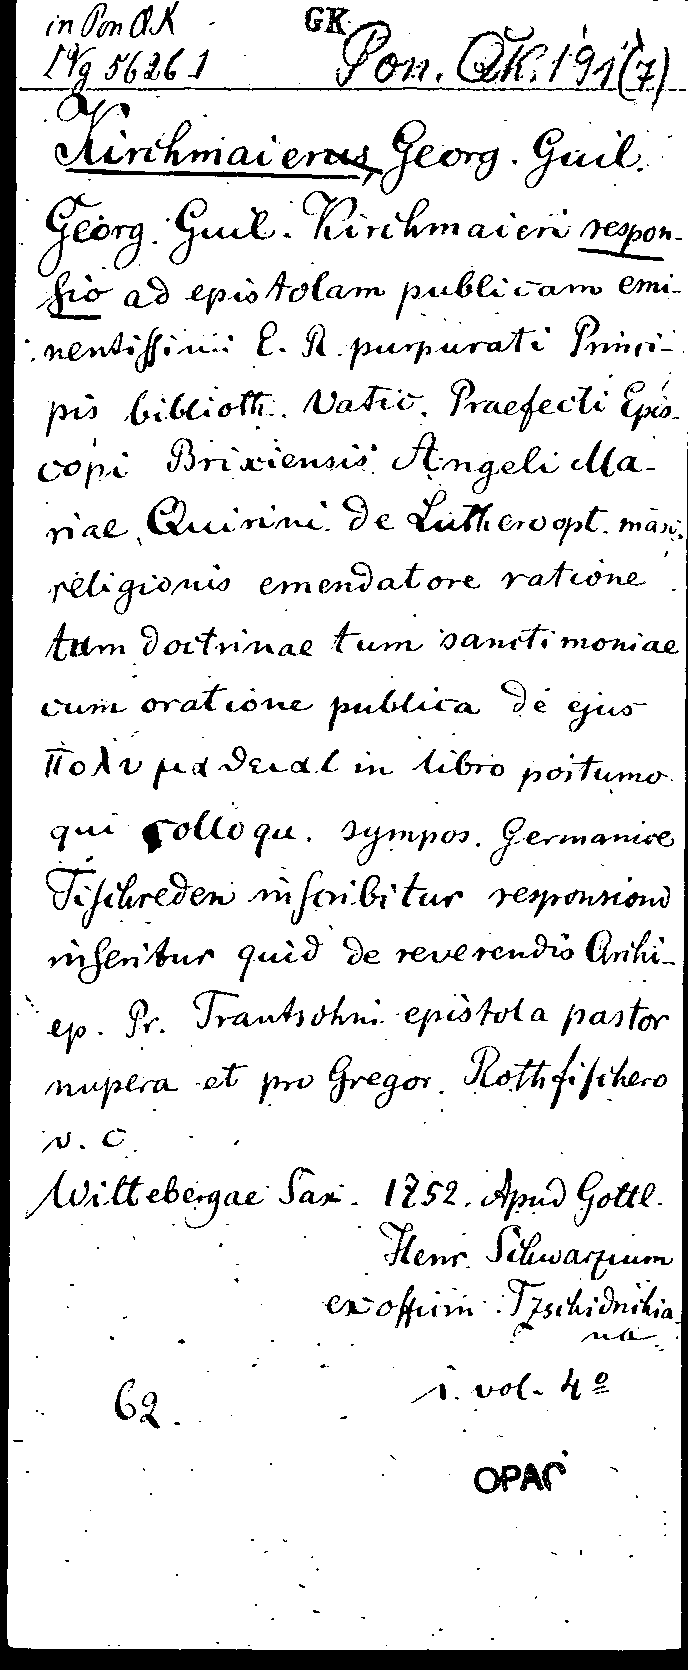 in Pon QK
GK
IVg 56261
Pon. QK. 191(7)
Kirchmaierus, Georg. Guil.
Georg. Guil. Kirchmaieri respon-
sio ad epistolam publicam emi-
nentissimi E. R. purpurati Princi-
pis biblioth. Vatic. Praefecti Epis-
copi Brixiensis Angeli Ma-
riae Quirini de Luthero opt. max.
religionis emendatore ratione
tum doctrinae tum sanctimoniae
cum oratione publica de ejus
πολυμαθειαι in libro postumo
qui colloqu. sympos. Germanice
Tischreden inscribitur responsioni
inseritur quid de reverendis Archi-
ep. Pr. Trautsohni epistola pastor
nupera et pro Gregor. Rothfischero
v. c.
Wittebergae Sax. 1752. Apud Gottl.
Henr. Schwarzium
ex officin. Tzschidrichia-
na.
1. vol. 4º
62.
OPAC